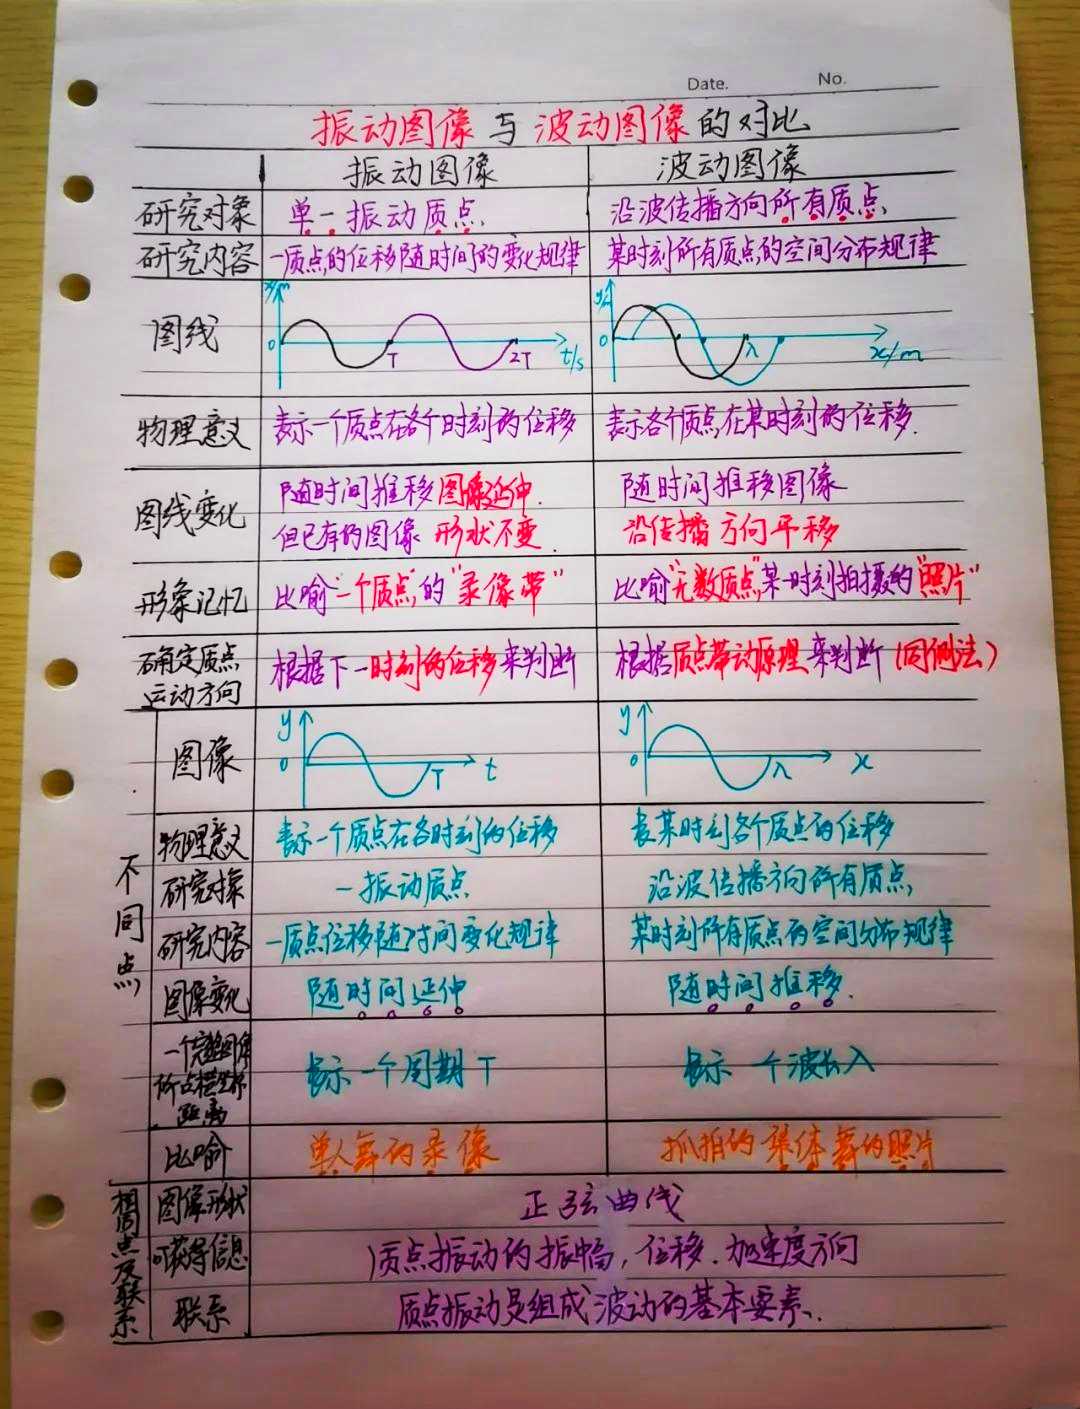 Date. No.
振动图像与波动图像的对比
振动图像 波动图像
研究对象 单一振动质点. 沿波传播方向所有质点.
研究内容 一质点的位移随时间的变化规律 某时刻所有质点的空间分布规律
图线 x/m 0 T 2T t/s y 0 λ x/m
物理意义 表示一个质点在各个时刻的位移 表示各个质点在某时刻的位移.
图线变化 随时间推移图像延伸. 随时间推移图像
但已有的图像 形状不变. 沿传播方向平移
形象记忆 比喻"一个质点"的"录像带" 比喻"无数质点"某一时刻拍摄的"照片"
确定质点 根据下一时刻的位移来判断 根据质点带动原理来判断(同侧法)
运动方向
不同点
图像 y 0 T t y 0 λ x
物理意义 表示一个质点在各时刻的位移 表某时刻各个质点的位移
研究对象 一振动质点 沿波传播方向所有质点
研究内容 一质点位移随时间变化规律 某时刻所有质点的空间分布规律
图像变化 随时间延伸 随时间推移.
一个完整图像 表示一个周期T 表示一个波长λ
所占横坐标
距离
比喻 单人舞的录像 抓拍的集体舞的照片
相同点及联系
图像形状 正弦曲线
可获得信息 质点振动的振幅,位移.加速度方向
联系 质点振动是组成波动的基本要素.